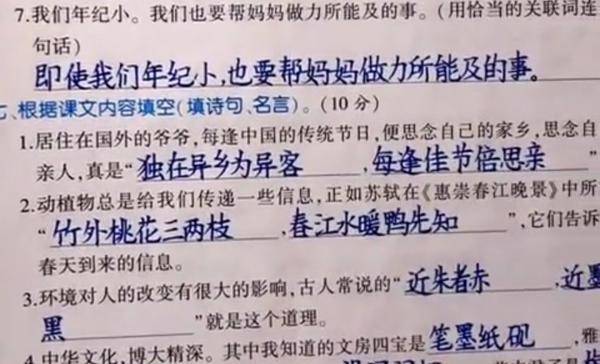 7.我们年纪小。我们也要帮妈妈做力所能及的事。(用恰当的关联词连
句话)
即使我们年纪小,也要帮妈妈做力所能及的事。
七、根据课文内容填空(填诗句、名言)。(10分)
1.居住在国外的爷爷,每逢中国的传统节日,便思念自己的家乡,思念自
亲人,真是“独在异乡为异客,每逢佳节倍思亲”
2.动植物总是给我们传递一些信息,正如苏轼在《惠崇春江晚景》中所
“竹外桃花三两枝,春江水暖鸭先知”,它们告诉
春天到来的信息。
3.环境对人的改变有很大的影响,古人常说的“近朱者赤,近墨
黑”就是这个道理。
4.中华文化,博大精深。其中我知道的文房四宝是笔墨纸砚,雅